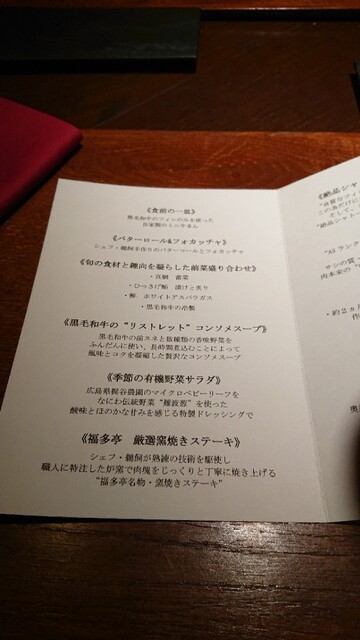 《食前の一皿》
黒毛和牛のフィレのみを使った
自家製のミニ牛まん
《バターロール&フォカッチャ》
シェフ・鵜飼手作りのバターロールとフォカッチャ
《旬の食材と趣向を凝らした前菜盛り合わせ》
・真鯛 菜
・ひっさげ鮪 漬けと炙り
・ ホワイトアスパラガス
・黒毛和牛の冷製
《黒毛和牛の“リストレット”コンソメスープ》
黒毛和牛の前スネと数種類の香味野菜を
ふんだんに使い、長時間煮込むことによって
風味とコクを凝縮した贅沢なコンソメスープ
《季節の有機野菜サラダ》
広島県梶谷農園のマイクロベビーリーフを
なにわ伝統野菜“難波葱”を使った
酸味とほのかな甘みを感じる特製ドレッシングで
《福多亭 厳選窯焼きステーキ》
シェフ・鵜飼が熟練の技術を駆使し
職人に特注した炉窯で肉塊をじっくりと丁寧に焼き上げる
“福多亭名物・窯焼きステーキ”
《絶品シャ
この為だけに
そして、
“絶品シャ
“A5 ランク
サシの質
肉本来の“
・約2ヵ月
作